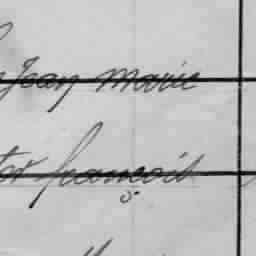 Jean Marie
tor françois